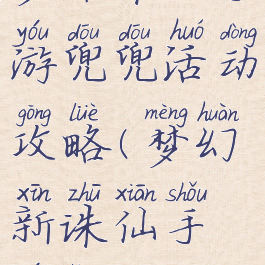 yóu dōu dōu huó dòng
游兜兜活动
gōng lüè mèng huàn
攻略(梦幻
xīn zhū xiān shǒu
新诛仙手